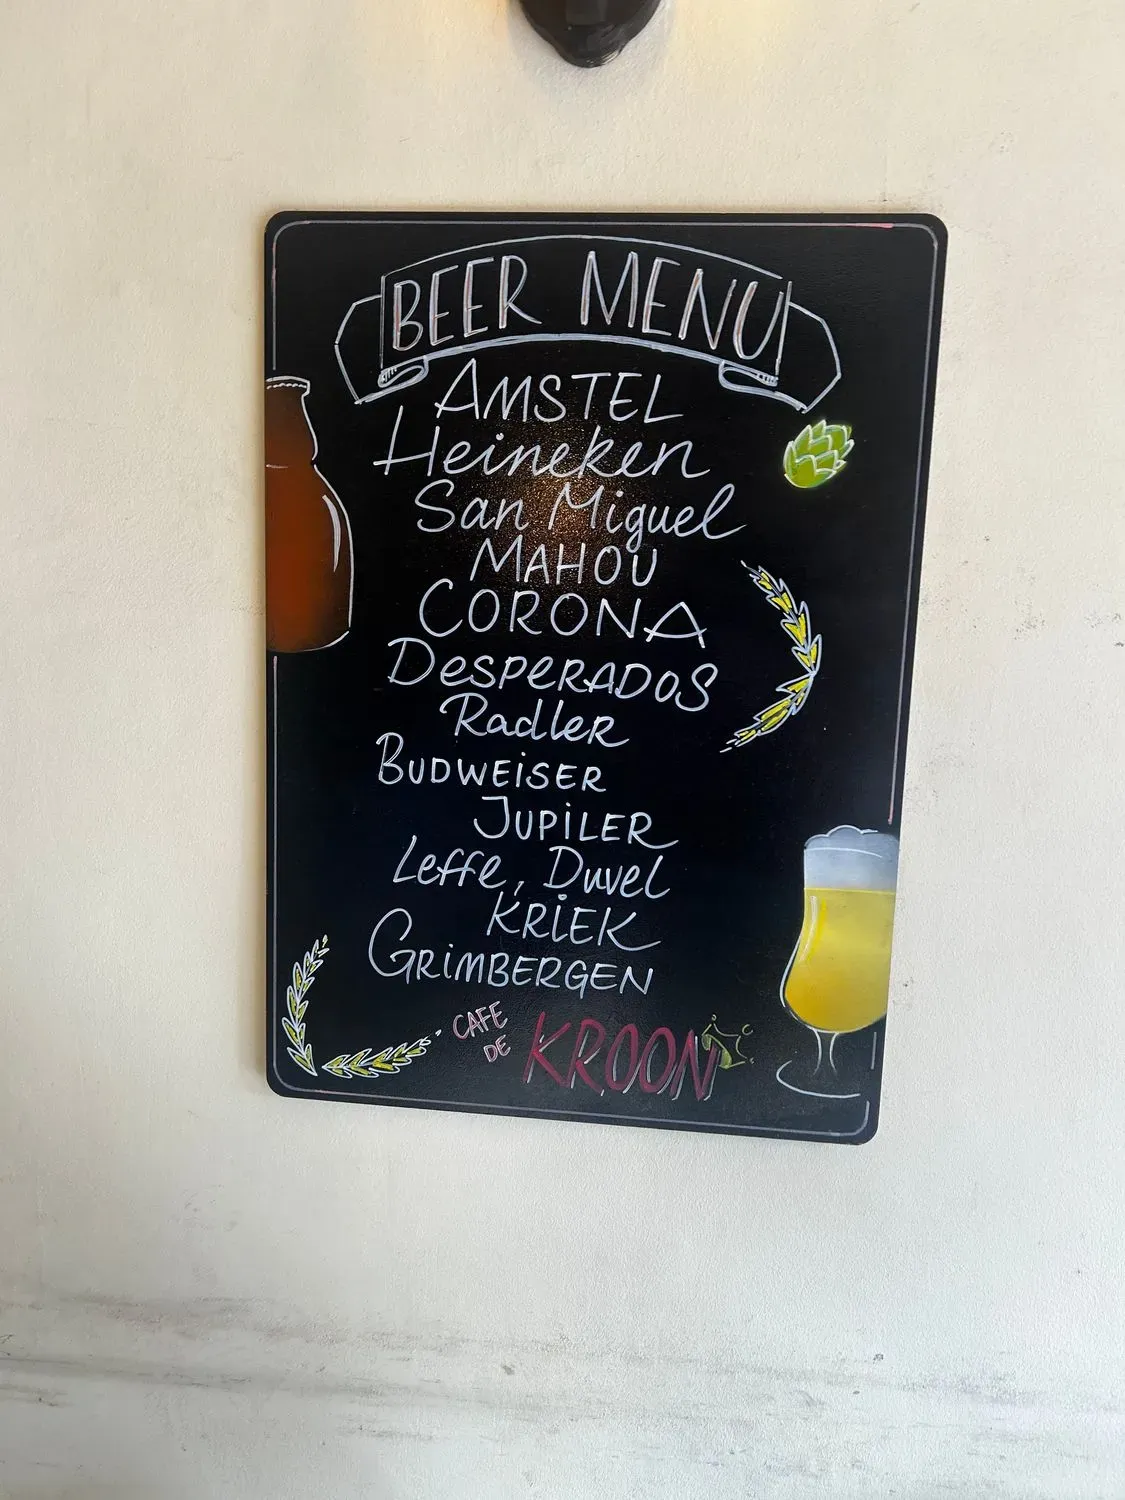 BEER MENU
AMSTEL
Heineken
San Miguel
MAHOU
CORONA
DESPERADOS
Radler
BUDWEISER
JUPILER
Leffe, Duvel
KRIEK
GRIMBERGEN
CAFE
DE
KROON